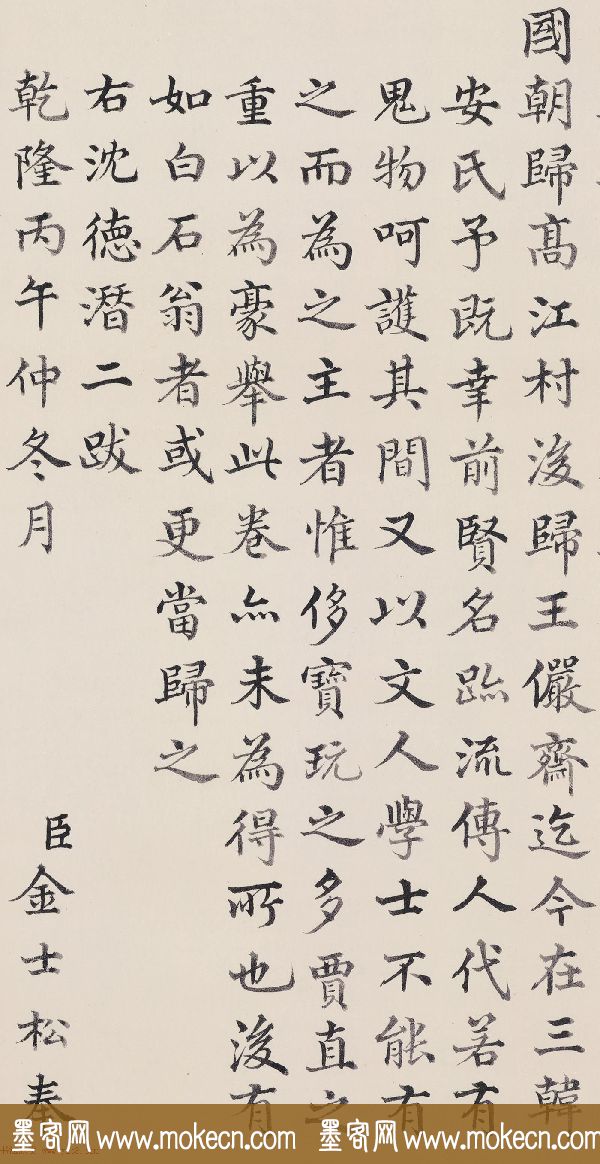 國朝歸髙江村後歸王儼齋迄今在三韓
安氏予既幸前賢名跡流傳人代若有
鬼物呵護其間又以文人學士不能有
之而為之主者惟侈寶玩之多賈直之
重以為豪舉此卷亦未為得所也後有
如白石翁者或更當歸之
右沈德潛二跋
乾隆丙午仲冬月
臣金士松奉
墨客网 www.mokecn.com 墨客网 www.mokecn.com